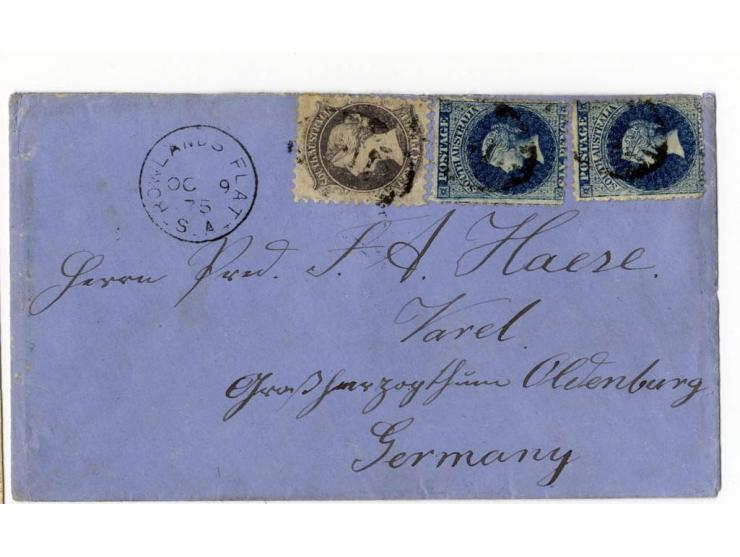 ROWLANDS FLAT
OC 9
75
S.A
SOUTH AUSTRALIA
POSTAGE
SOUTH AUSTRALIA
SIX PENCE
POSTAGE
SOUTH AUSTRALIA
Herrn Pred. J. A. Haese.
Varel
Großherzogthum Oldenburg
Germany